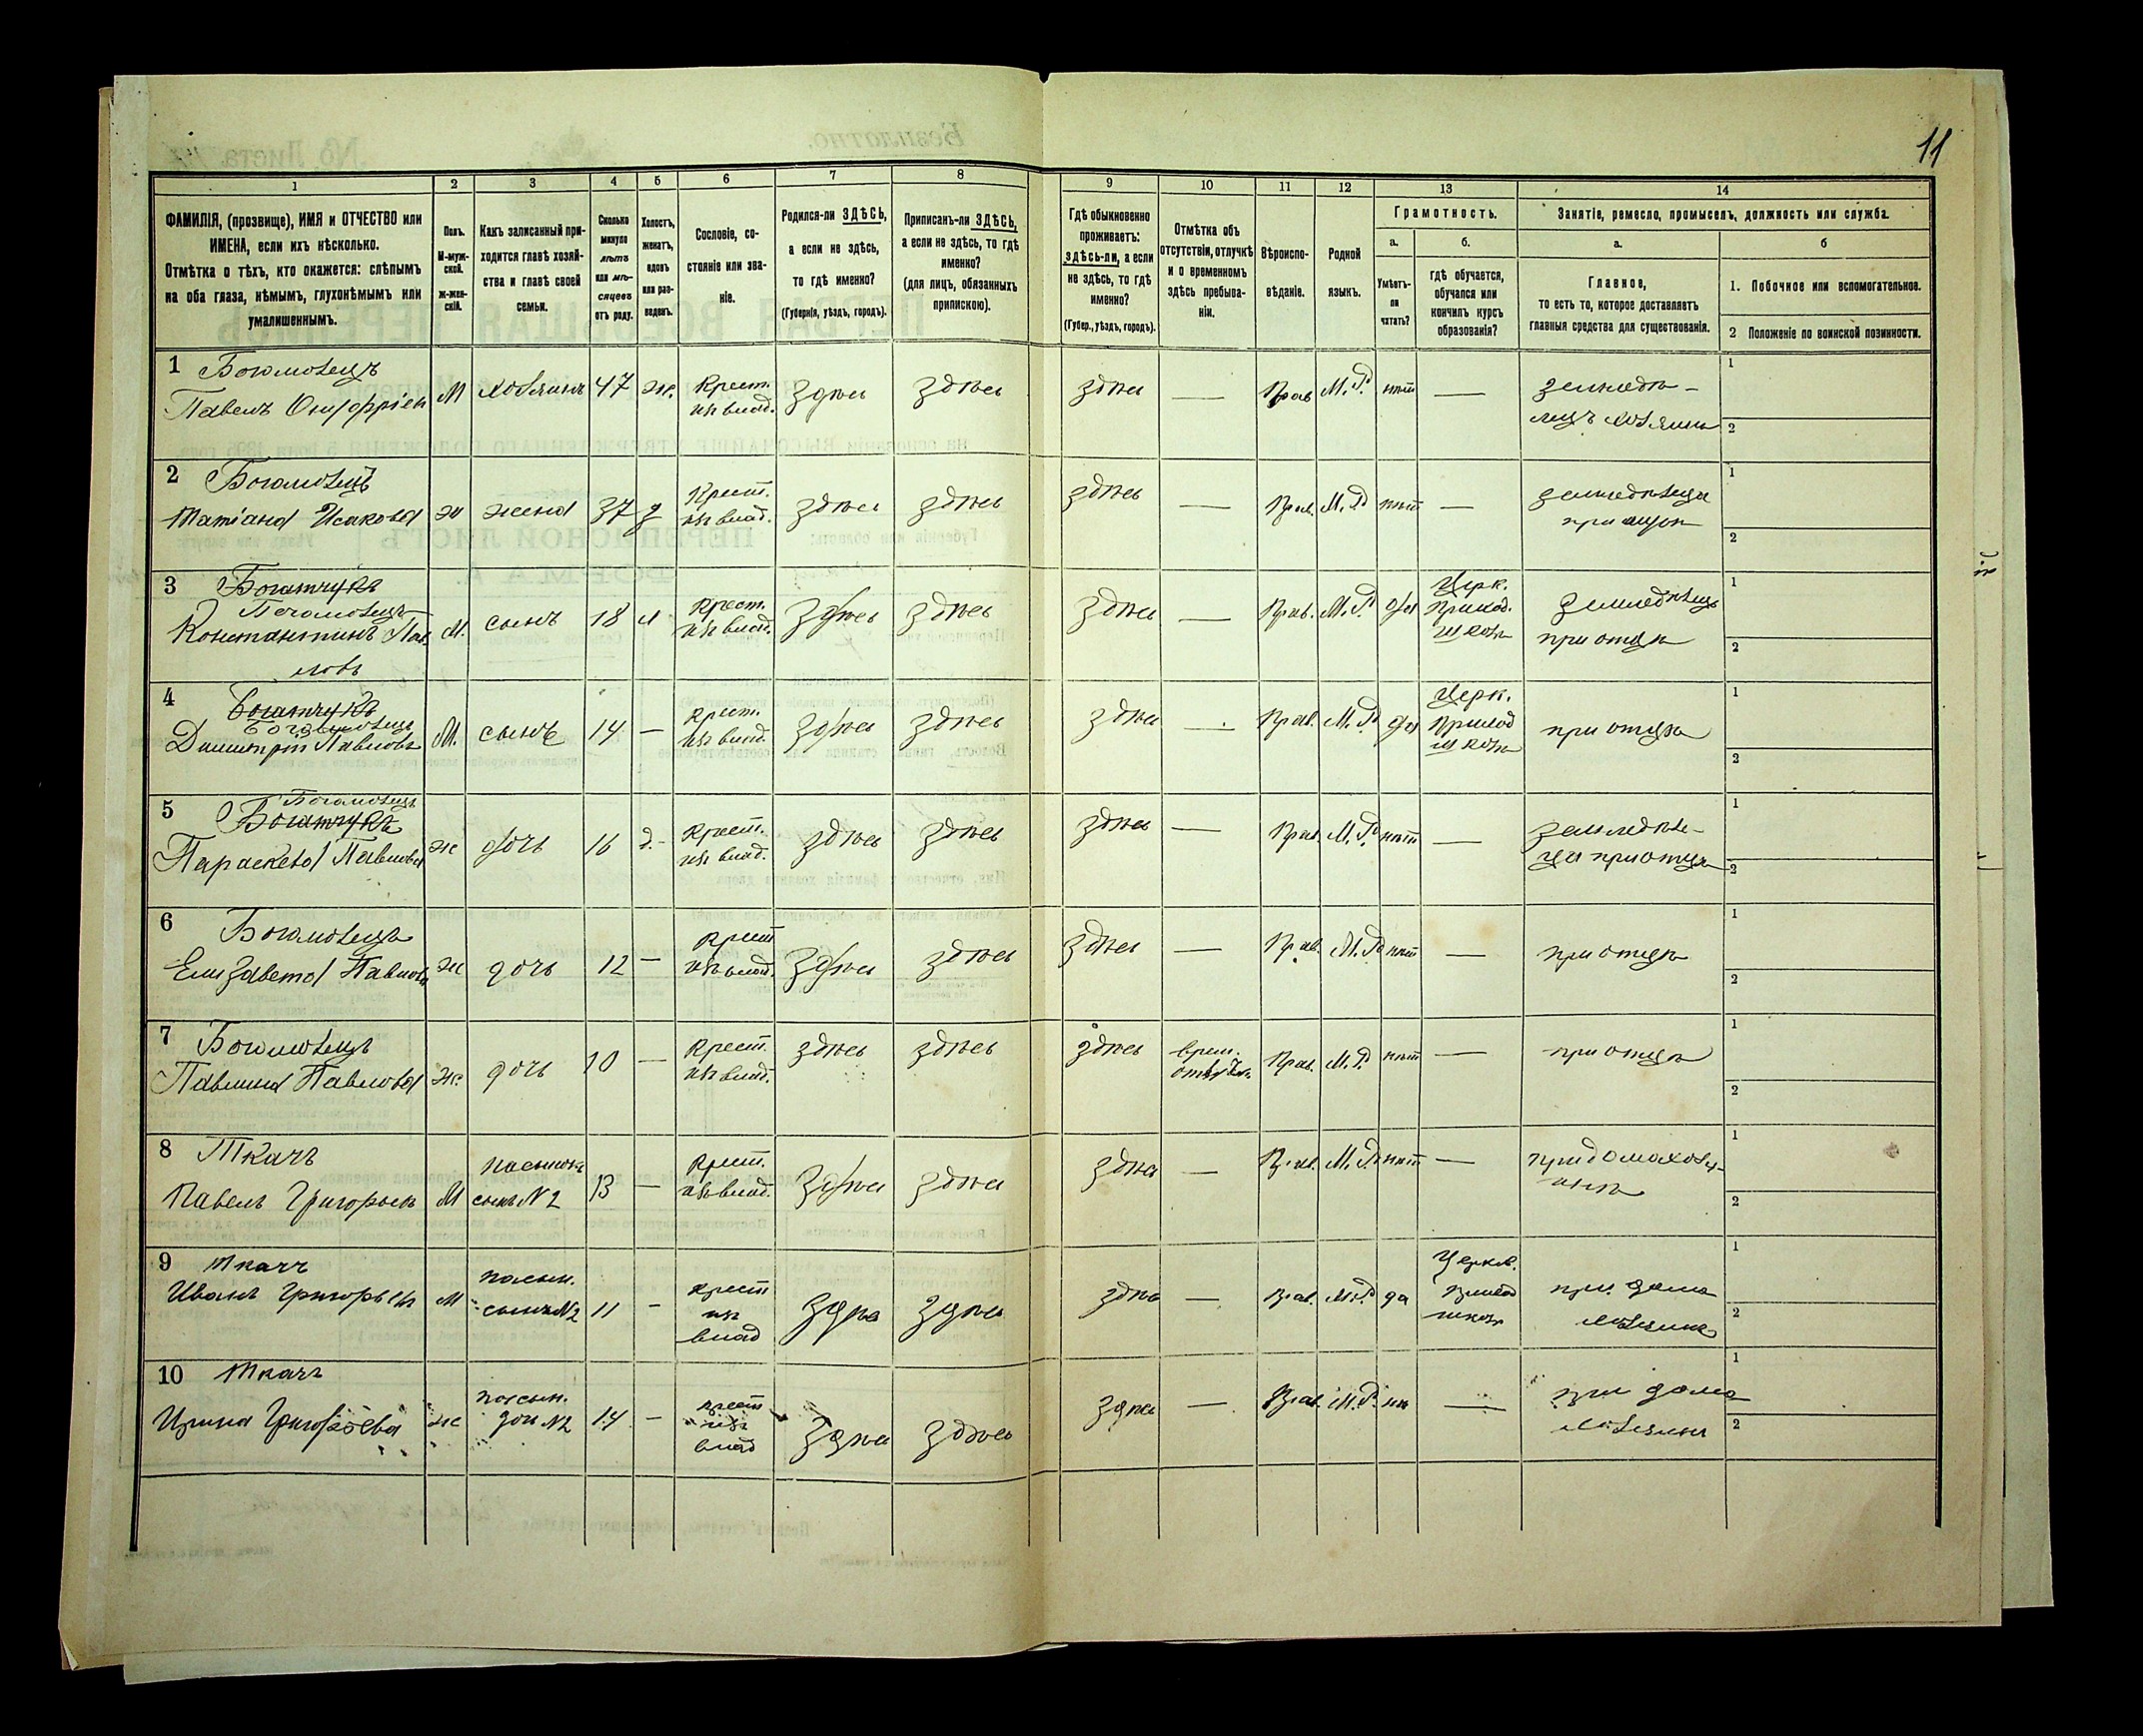 11
1 2 3 4 5 6 7 8 9 10 11 12 13 14
ФАМИЛІЯ, (прозвище), ИМЯ и ОТЧЕСТВО или
ИМЕНА, если ихъ нѣсколько.
Отмѣтка о тѣхъ, кто окажется: слѣпымъ
на оба глаза, нѣмымъ, глухонѣмымъ или
умалишеннымъ.
Полъ.
М-муж-
ской.
ж-жен-
скій.
Какъ записанный при-
ходится главѣ хозяй-
ства и главѣ своей
семьи.
Сколько
минуло
лѣтъ
или мѣ-
сяцевъ
отъ роду.
Холостъ,
женатъ,
вдовъ
или раз-
веденъ.
Сословіе, со-
стояніе или зва-
ніе.
Родился-ли ЗДѢСЬ,
а если не здѣсь,
то гдѣ именно?
(Губернія, уѣздъ, городъ).
Приписанъ-ли ЗДѢСЬ,
а если не здѣсь, то гдѣ
именно?
(для лицъ, обязанныхъ
припискою).
Гдѣ обыкновенно
проживаетъ:
здѣсь-ли, а если
не здѣсь, то гдѣ
именно?
(Губер., уѣздъ, городъ).
Отмѣтка объ
отсутствіи, отлучкѣ
и о временномъ
здѣсь пребыва-
ніи.
Вѣроиспо-
вѣданіе.
Родной
языкъ.
Грамотность.
а.
Умѣетъ-
ли
читать?
б.
гдѣ обучается,
обучался или
кончилъ курсъ
образованія?
Занятіе, ремесло, промыселъ, должность или служба.
а.
Главное,
то есть то, которое доставляетъ
главныя средства для существованія.
б
1. Побочное или вспомогательное.
2 Положеніе по воинской повинности.
1 Богомолецъ
Павелъ Онуфріев М хозяинъ 47 ж. Крест. здѣсь здѣсь здѣсь — Прав М.Р. нѣт — земледѣ-
изъ влад.
лецъ хозяинъ
1
2
2 Богомолецъ
Татіана Исакова ж жена 37 з Крест. здѣсь здѣсь здѣсь — Прав. М.Р. нѣт —
изъ влад.
1
2
3 Богатчукъ
Богомолецъ
Константинъ Пав-
ловъ
М. сынъ 18 х Крест. здѣсь здѣсь здѣсь — Прав. М.Р. да
изъ влад.
Церк.
Приход.
школѣ
земледѣлецъ
при отцѣ
1
2
4 Богатчукъ
Богомолецъ
Димитрій Павловъ М. сынъ 14 — Крест. здѣсь здѣсь здѣсь — Прав. М.Р. да
изъ влад.
Церк.
Приход
школѣ
при отцѣ
1
2
5 Богомолецъ
Богатчукъ
Параскева Павлова ж дочь 16 д. Крест. здѣсь здѣсь здѣсь — Прав. М.Р. нѣт —
изъ влад.
земледѣл-
ца при отцѣ
1
2
6 Богомолецъ
Елизавета Павлова ж дочь 12 — Крест здѣсь здѣсь здѣсь — Прав. М.Р. нѣт — при отцѣ
изъ влад.
1
2
7 Богомолецъ
Павлина Павлова ж. дочь 10 — Крест. здѣсь здѣсь здѣсь врем. Прав. М.Р. нѣт — при отцѣ
изъ влад.
1
2
8 Ткачъ
Павелъ Григорьев М пасынокъ
сынъ N 2 13 — Крест. здѣсь здѣсь здѣсь — Прав. М.Р. нѣт —
изъ влад.
1
2
9 Ткачъ
Иванъ Григорьев М пасын.
сынъ N2 11 — крест здѣсь здѣсь здѣсь — Прав. М.Р. да
изъ
влад
Церков.
Приход
школѣ
1
2
10 Ткачъ
Ирина Григорьева ж
дочь N2 14 — крест здѣсь здѣсь здѣсь — Прав. М.Р. —
изъ
влад
1
2